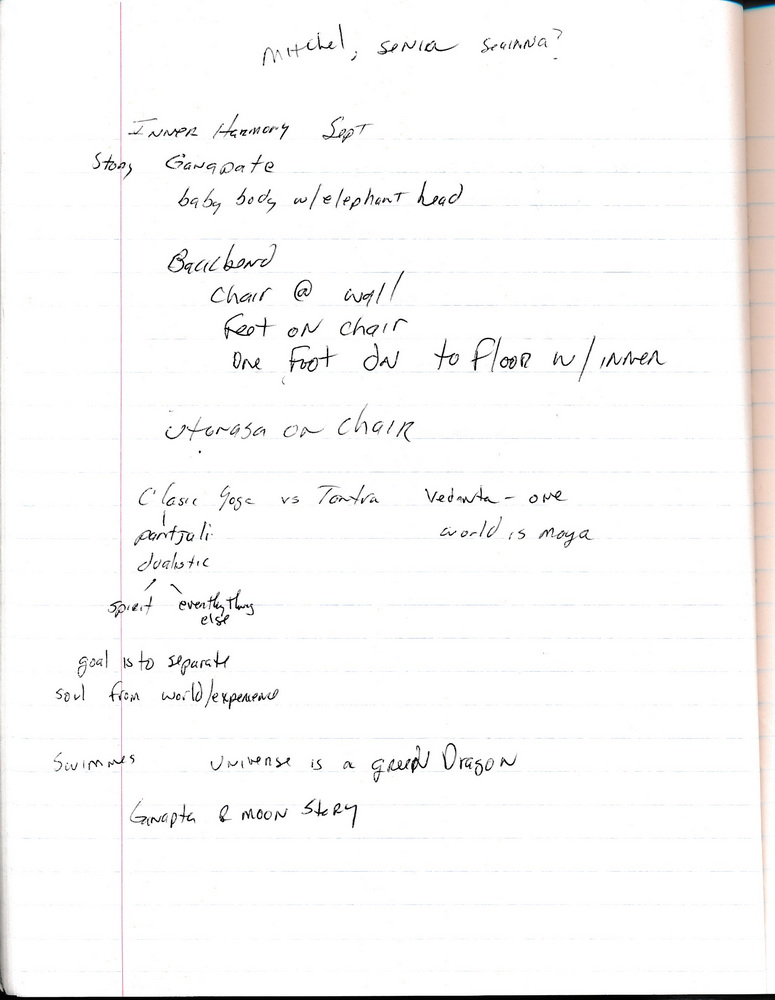 Mitchel, senia seuinna?
Inner Harmony Sept
Story Ganapate
baby body w/elephant head
Backbend
Chair @ wall
Feet on chair
One Foot dn to Floor w/inner
utorasa on chair
Clasic Yoga vs Tantra Vedanta - one
pantjali world is maya
dualistic
spirit everthything
else
goal is to separate
soul from world/experience
Swimmes Universe is a green Dragon
Ganapta & moon Story